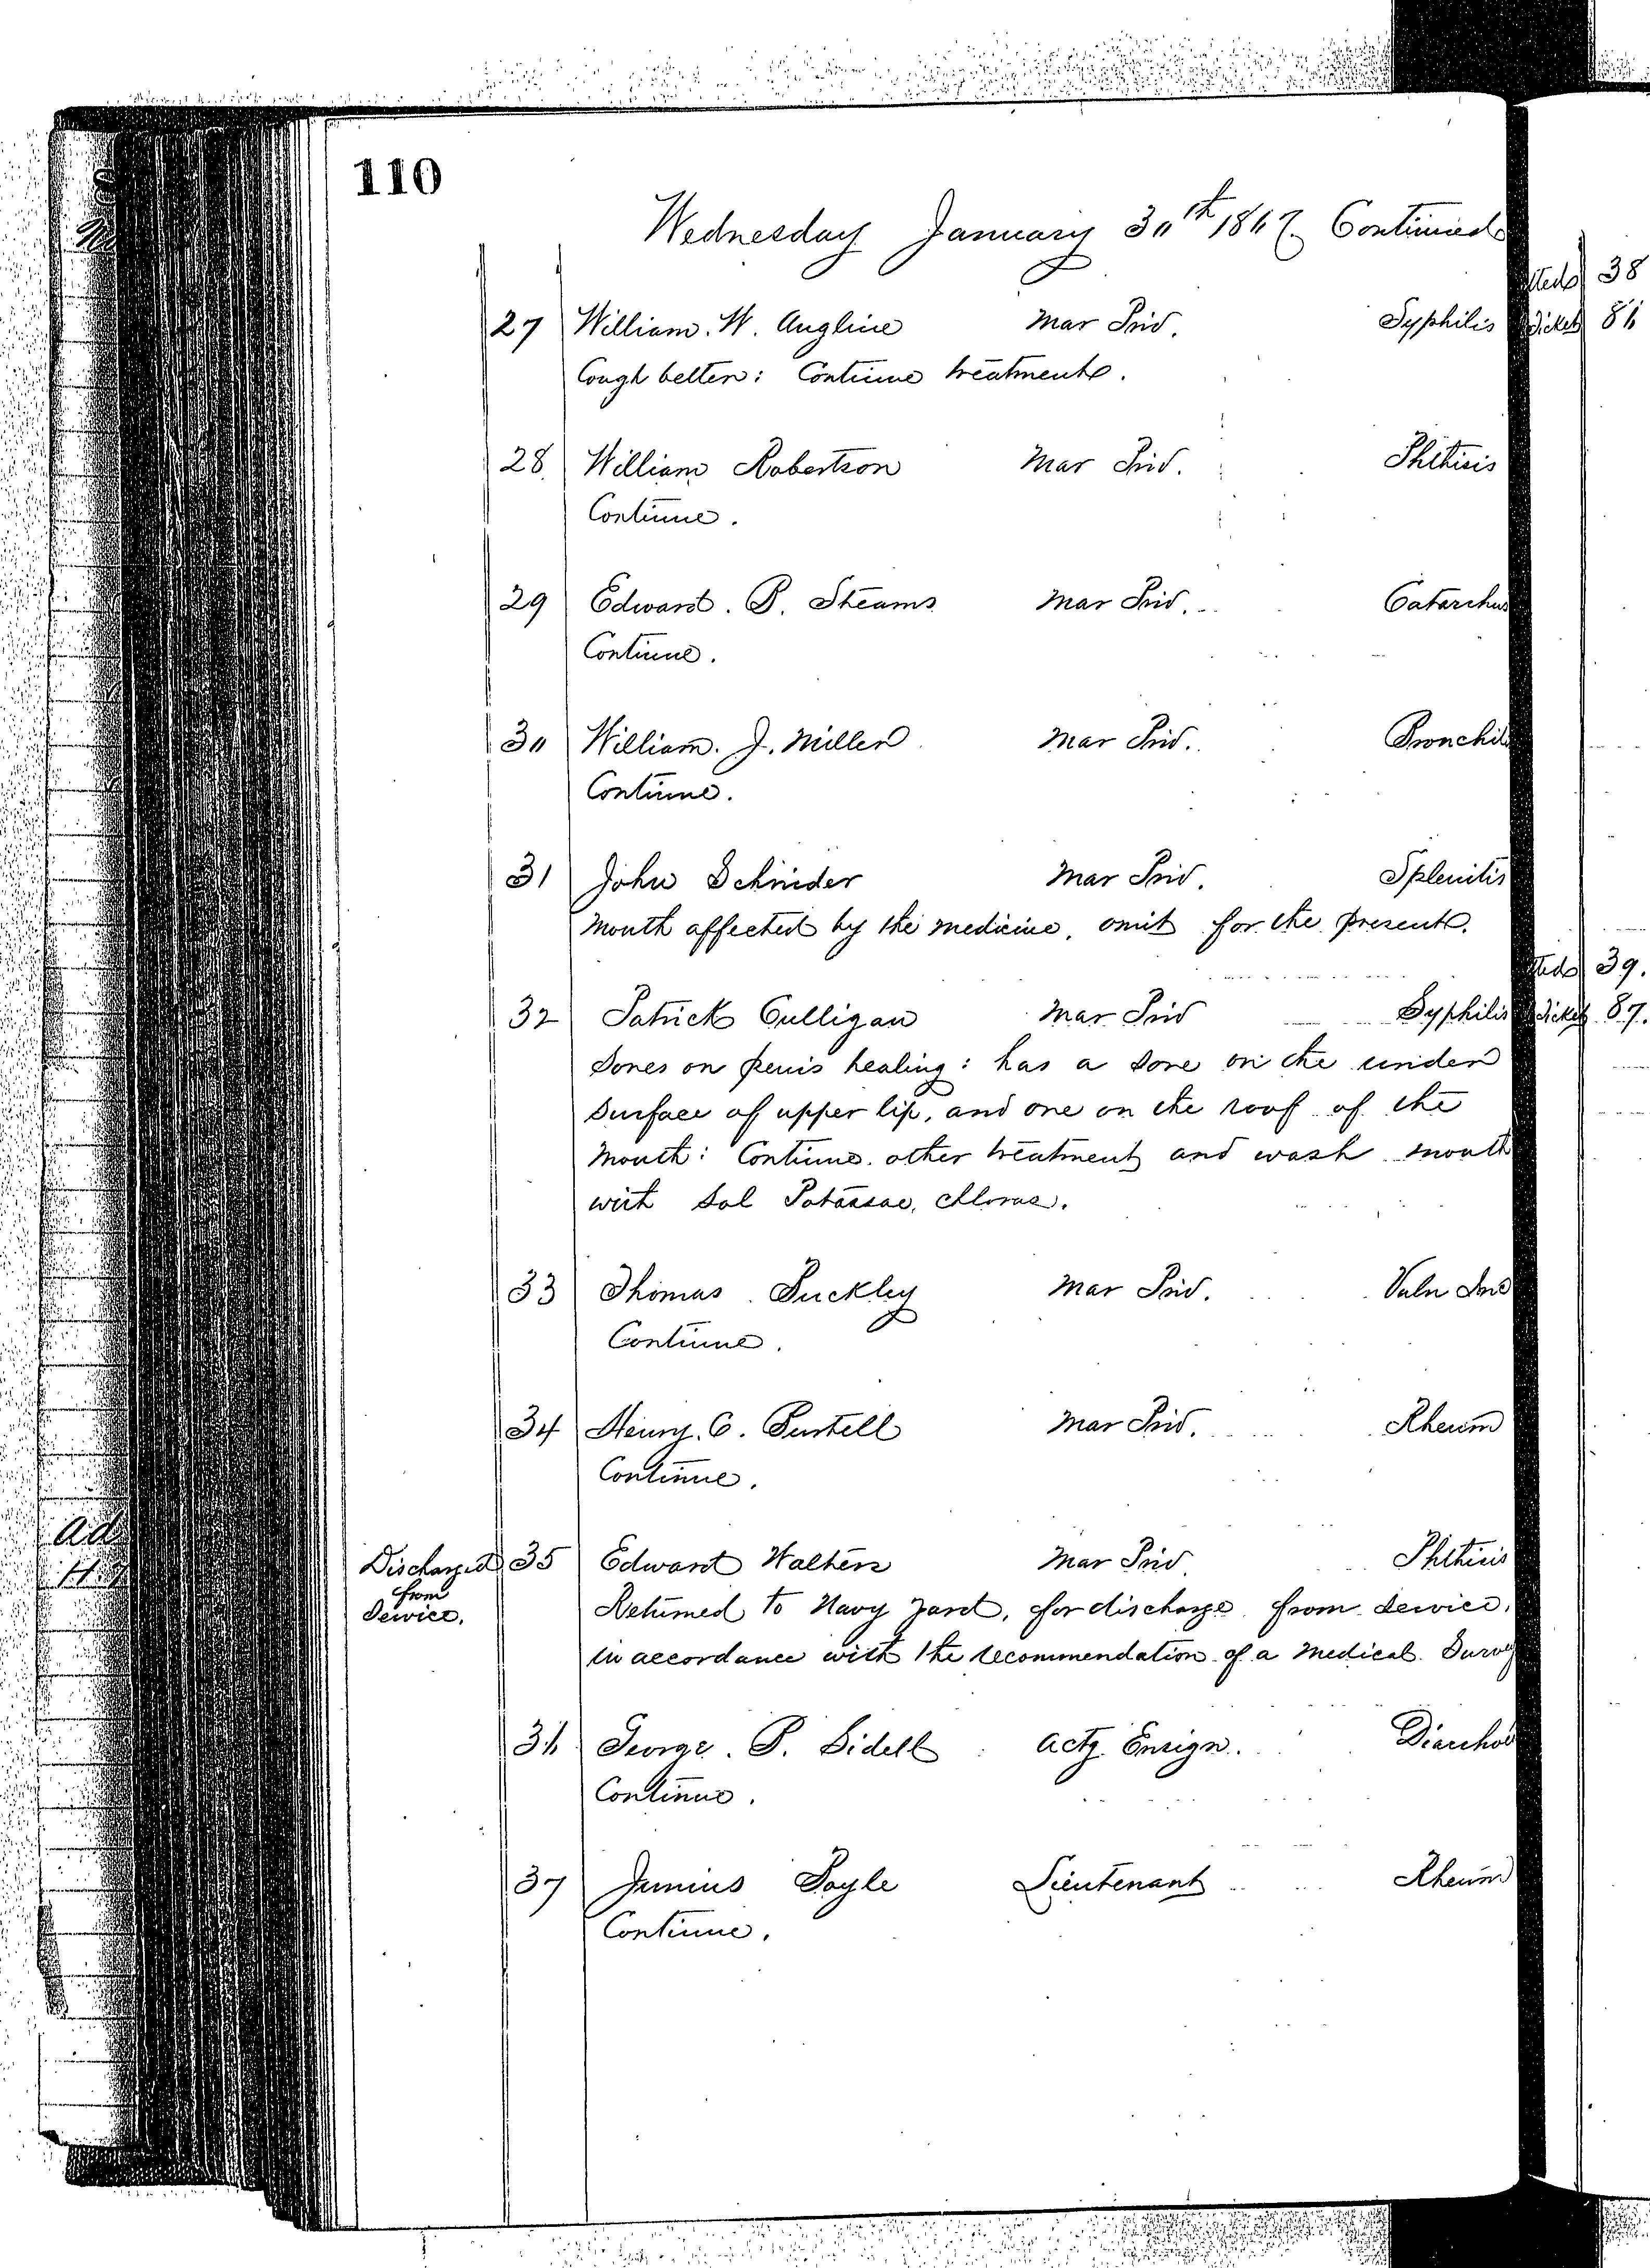 110
Wednesday January 30th 1867. Continued
27 William. W. Angline Mar Priv. Syphilis
Cough better: Continue treatment.
28. William Robertson Mar Priv. Phthisis
Continue.
29 Edward. P. Stearns Mar Priv. Catarrhus
Continue.
30 William. J. Miller Mar Priv. Bronchit
Continue.
31 John Schnider Mar Priv. Splenitis
Mouth affected by the medicine, omit for the present.
32 Patrick Culligan Mar Priv Syphilis
Sores on penis healing: has a sore on the under
surface of upper lip, and one on the roof of the
mouth: Continue. other treatment and wash mouth
with Sol Potassae, chloras.
33 Thomas Buckley Mar Priv. Vuln Inc
Continue.
34 Henry. C. Purtell Mar Priv. Rheum
Continue.
Discharged 35 Edward Walters Mar Priv. Phthisis
from
Service.
Returned to Navy Yard, for discharge from service,
in accordance with the recommendation of a Medical Survey
36 George. P. Sidell Actg Ensign. Diarrhoe
Continue.
37 Junius Boyle Lieutenant Rheum
Continue.
38
86
39.
87.